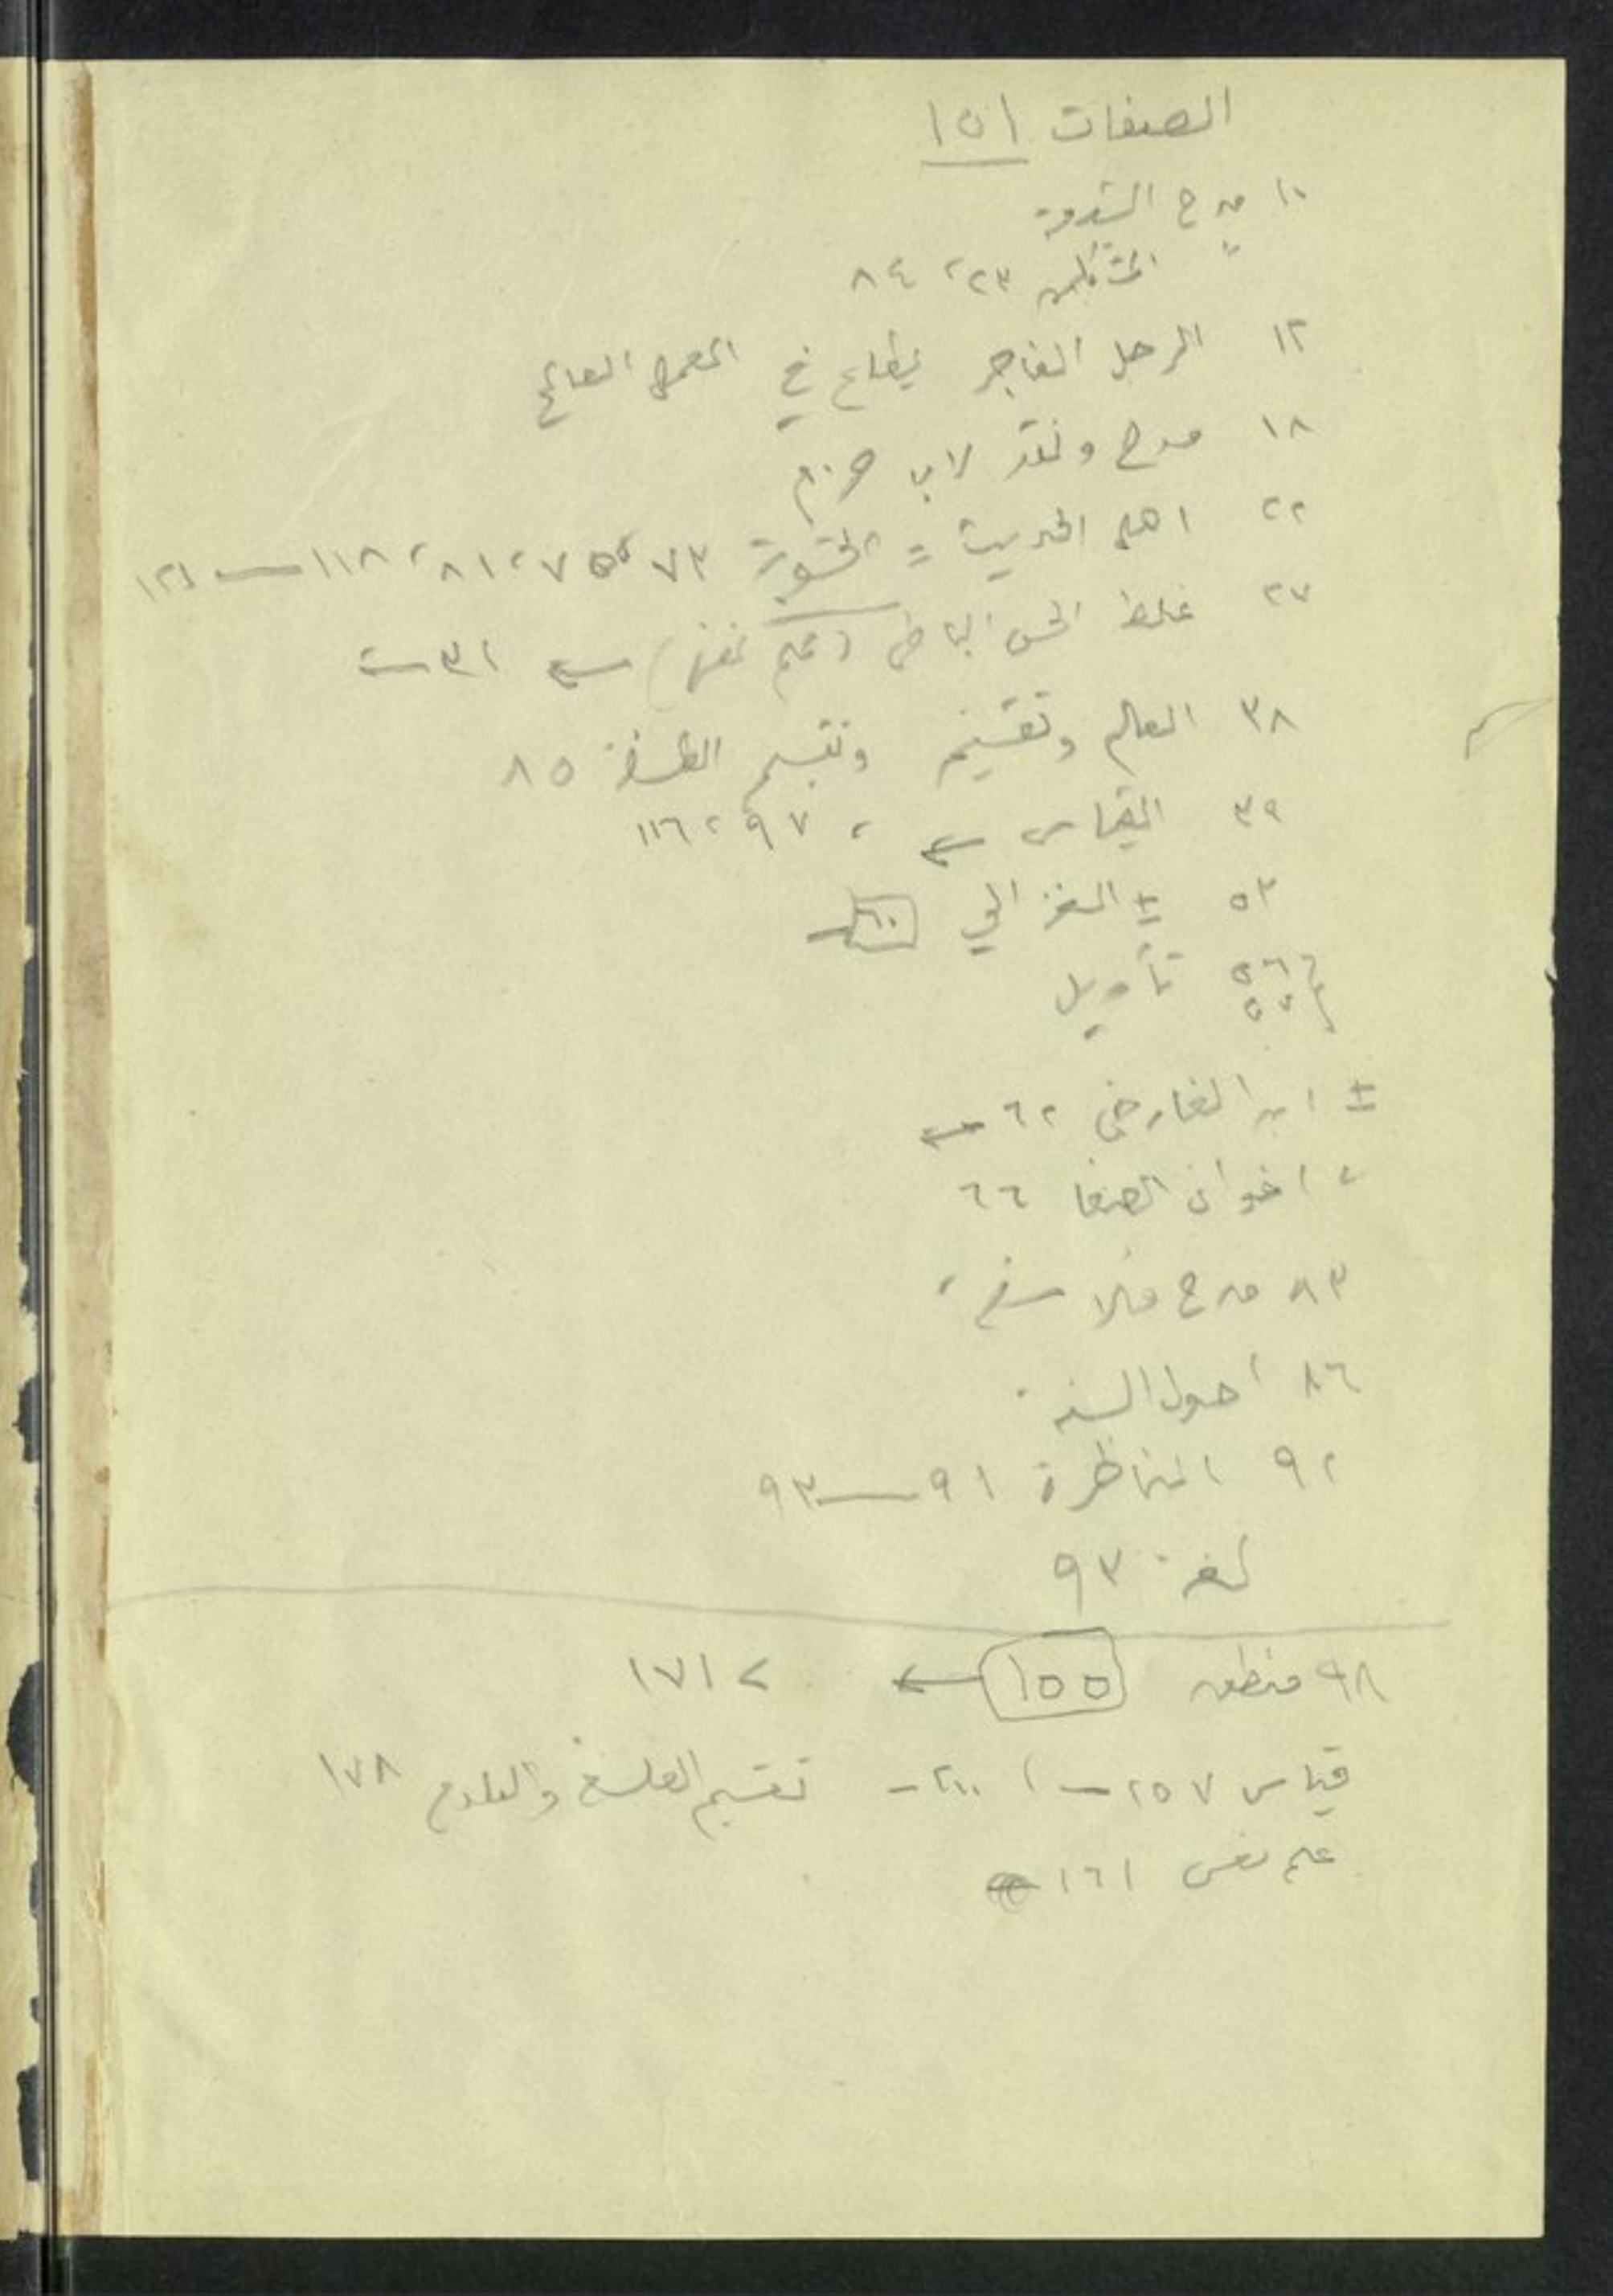 الصفات ١٥١
١٠ مدح
المتكلمين ٢٣، ٨٤
١٢ الرجل الفاجر يطاع في العمل الصالح
١٨ مدح ونقد لابن حزم
٢٢ اهل الحديث = الحشوية ٧٣، ٧٥، ٨١، ١١٨ — ١٢١
٢٧ غلط الحس الباطن (علم نفس) ← ٣١
٣٨ العالم وتقسيم وتقسيم الفلسفة ٨٥
٣٩ القياس ← ، ٩٧، ١١٦
٥٣ ± الغزالي ٦٠
٥٦ ٥٧ تأويل
± ابن الفارض ٦٢ ←
، اخوان الصفا ٦٦
٨٣ مدح فلاسفة
٨٦ اصول السنة
٩٢ المناظرة ٩١ — ٩٣
لغة ٩٣
٩٨ منطق ١٥٥ ← > ١٧١
قياس ٢٥٧ — ، ٢٠٠ — تقسيم الفلسفة والعلوم ١٧٨
علم نفس ١٦١